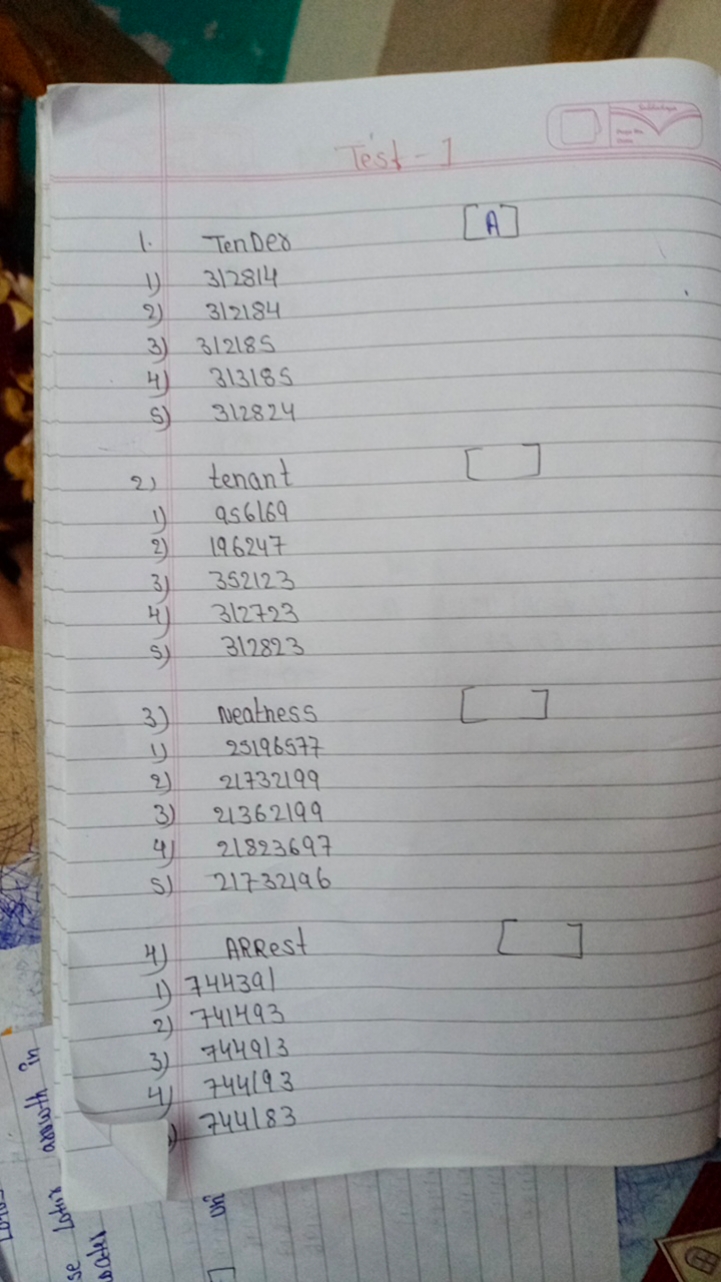 Test - 1
1. TenDer [A]
1) 312814
2) 312184
3) 312185
4) 313185
5) 312824
2) tenant [ ]
1) 956169
2) 196247
3) 352123
4) 312723
5) 312823
3) Neatness [ ]
1) 25196577
2) 21732199
3) 21362199
4) 21823697
5) 21732196
4) ARRest [ ]
1) 744391
2) 741493
3) 744913
4) 744193
) 744183
growth in